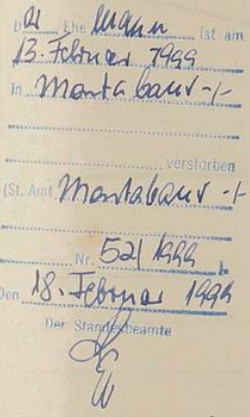 Der Ehemann ist am
13. Februar 1999
in Montabaur -/-
verstorben
(St. Amt Montabaur -/-
Nr. 52/1999 )
Den 18. Februar 1999
Der Standesbeamte